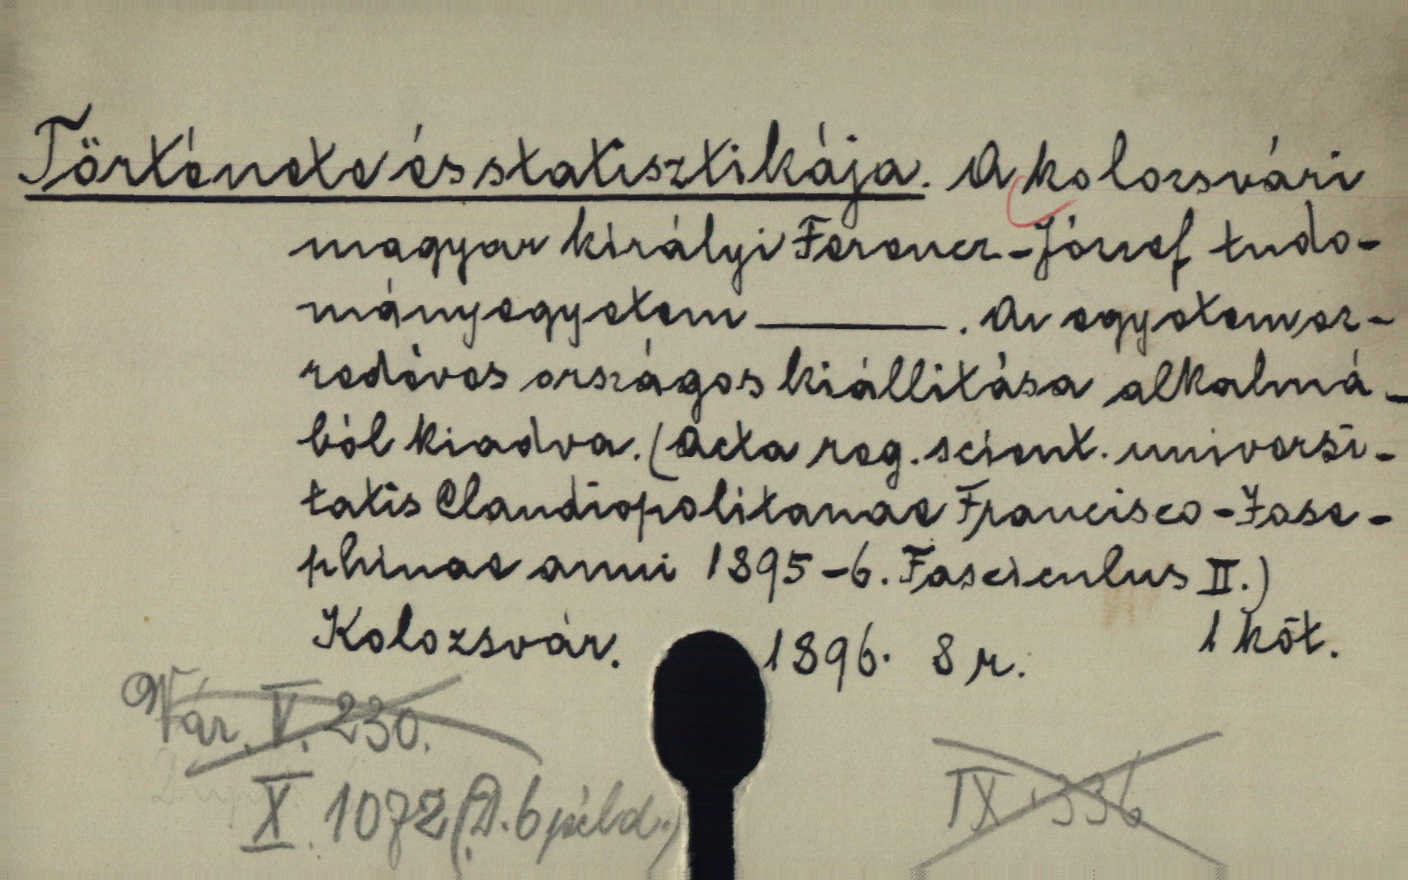 Története és statisztikája. A kolozsvári
magyar királyi Ferencz-József tudo-
mányegyetem ———. Az egyetem ez-
redéves országos kiállitása alkalmá-
ból kiadva. (Acta reg. scient. universi-
tatis Claudiopolitanae Francisco-Jose-
phinae anni 1895-6. Fasciculus II.)
Kolozsvár. 1896. 8 r. 1 köt.
Vár. V. 230.
IX 336
X. 1072 (D. 6 péld.)